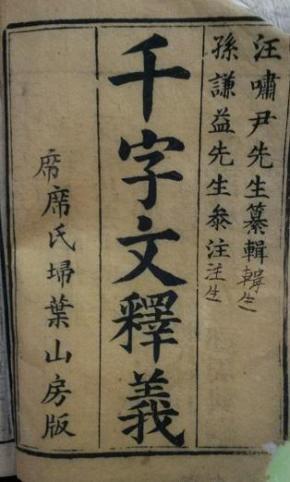 汪嘯尹先生纂輯輯生
孫謙益先生參注注生
千字文釋義
席席氏埽葉山房版